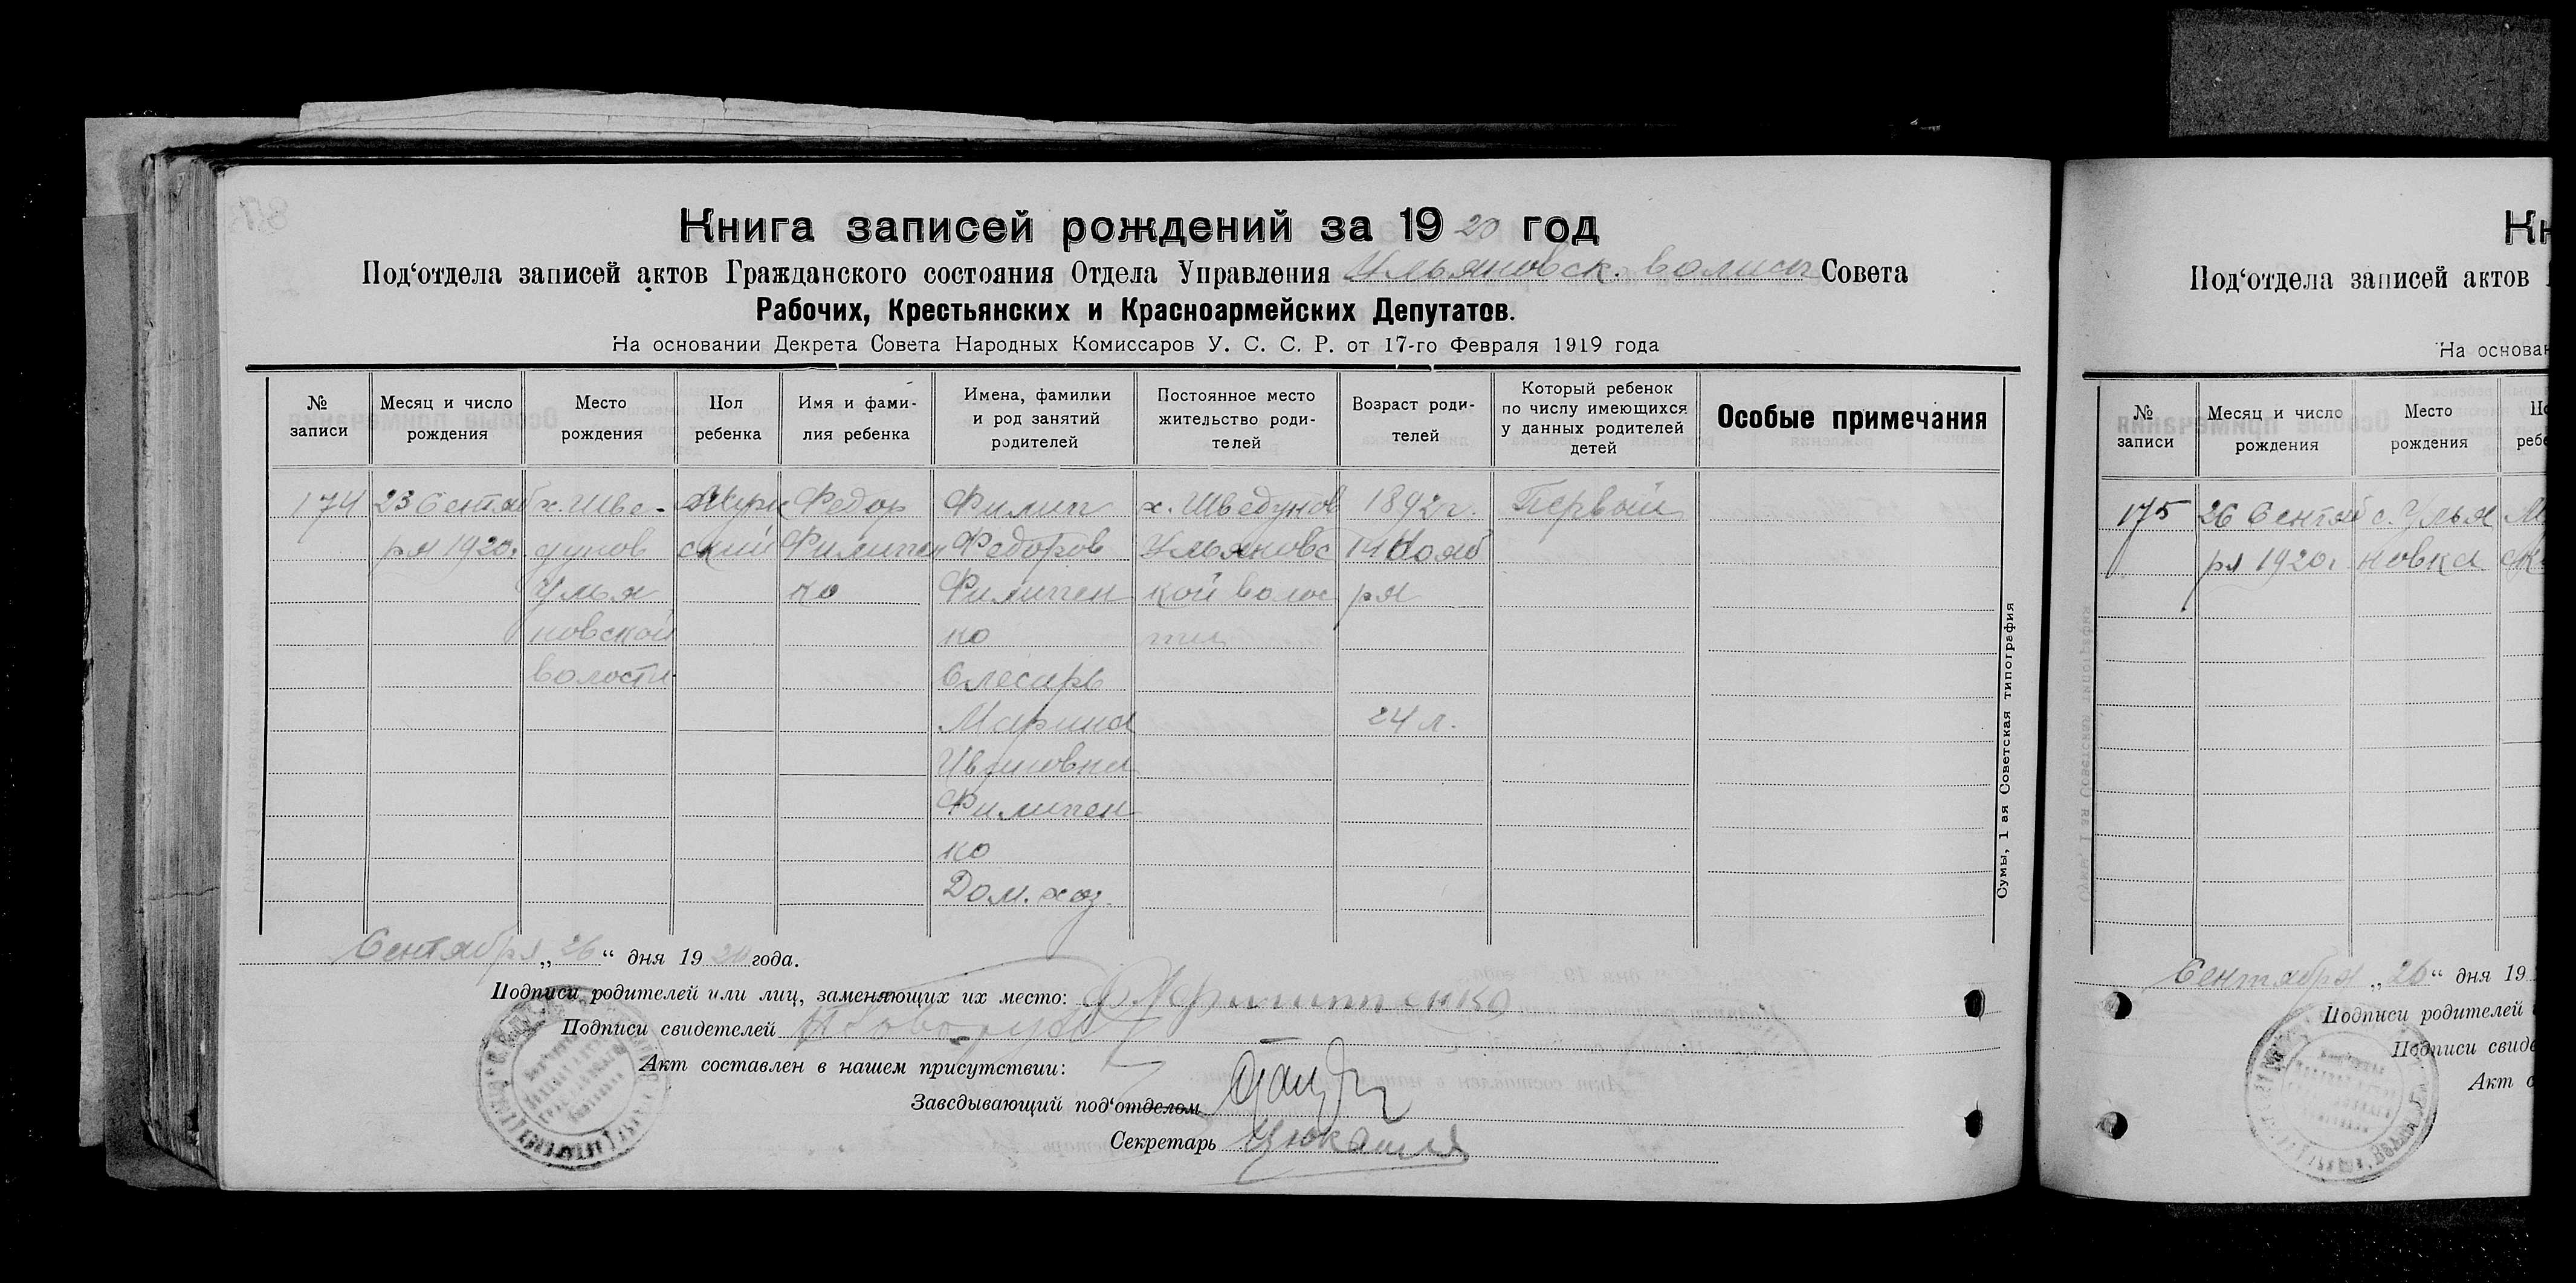 Книга записей рождений за 1920 год
Под‘отдела записей актов Гражданского состояния Отдела Управления Ульяновск. волисп Совета
Рабочих, Крестьянских и Красноармейских Депутатов.
На основании Декрета Совета Народных Комиссаров У. С. С. Р. от 17-го Февраля 1919 года
№ записи
Месяц и число рождения
Место рождения
Пол ребенка
Имя и фами-
лия ребенка
Имена, фамилии
и род занятий
родителей
Постоянное место
жительство роди-
телей
Возраст роди-
телей
Который ребенок
по числу имеющихся
у данных родителей
детей
Особые примечания
174
23 Сентяб
ря 1920г
х. Шве-
дунов
Улья
новской
волости
Мужс
ский
Федор
Филипен
ко
Филип
Федоров
Филипен
ко
Слесарь
Марина
Ивановна
Филипен
ко
Дом. хоз.
х. Шведунов
Ульяновс
кой волос
ти
1892г.
14 Нояб
ря
24 л.
Первый
Сумы, 1 ая Советская типография
Сентября „26“ дня 1920 года.
Подписи родителей или лиц, заменяющих их место:
Подписи свидетелей
Акт составлен в нашем присутствии:
Заведывающий под‘отделом
Секретарь
Кн
Под‘отдела записей актов
На основан
№ записи
Месяц и число рождения
Место рождения
175
26 Сентяб
ря 1920г
с. Улья
новка
Сентября „26“ дня 19
Подписи родителей
Подписи свиде
Акт с